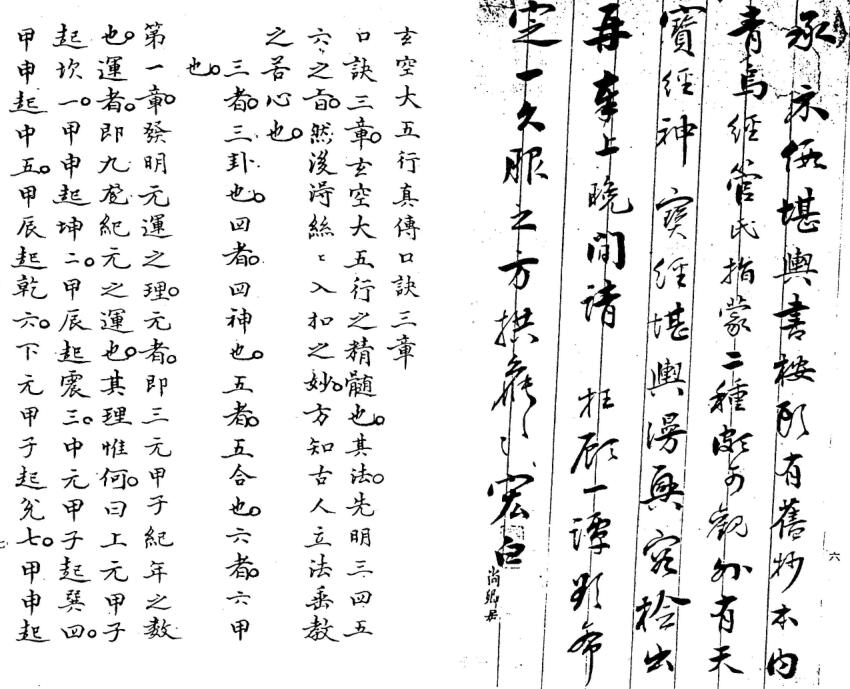 承示假堪輿書按所有舊抄本內
青烏經管氏指蒙二種頗可觀外有天
寶經神寶經堪輿漫興容檢出
再奉上晚間請 枉顧一譚彤弟
定一久服之方拱候〻 宏白
尚鄉兄
六
玄空大五行真傳口訣三章
口訣三章。玄空大五行之精髓也。其法。先明三四五
六。之旨。然後得絲〻入扣之妙。方知古人立法垂教
之苦心也。
三者。三卦也。四者。四神也。五者。五合也。六者。六甲
也。
第一章。發明元運之理。元者。即三元甲子紀年之數
也。運者。即九宮紀元之運也。其理惟何。曰上元甲子
起坎一。甲申起坤二。甲辰起震三。中元甲子起巽四。
甲申起中五。甲辰起乾六。下元甲子起兌七。甲申起
七